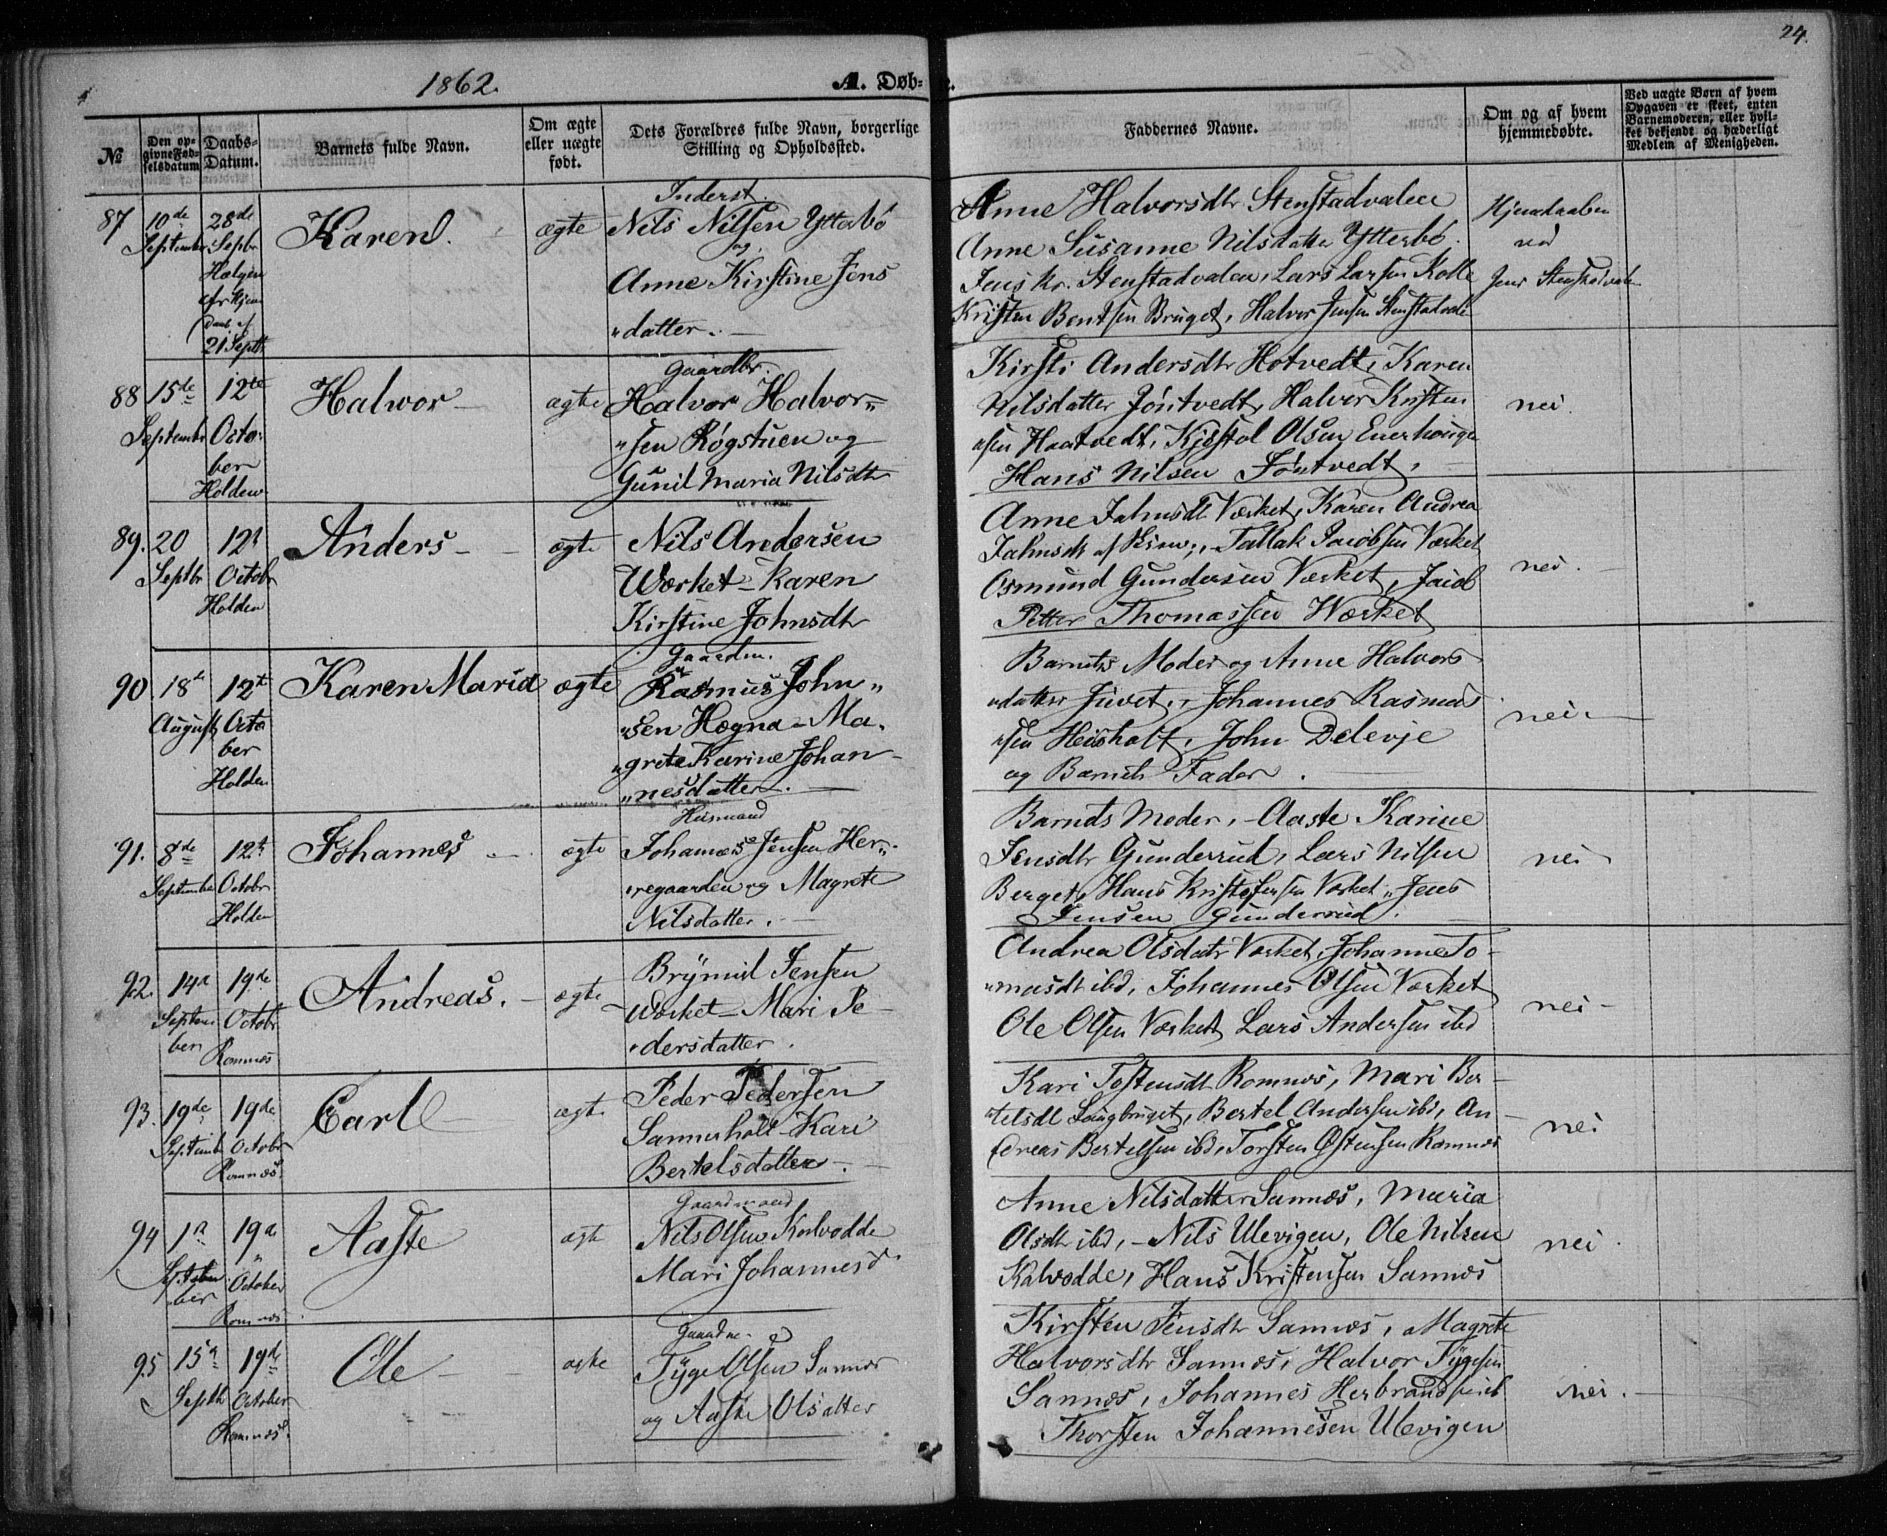 24.
1862.
A. Døb-
No
Den opgivne Fødselsdatum
Daabs-Datum.
Barnets fulde Navn.
Om ægte eller uægte født.
Dets Forældres fulde Navn, borgerlige Stilling og Opholdssted.
Faddernes Navne.
Om og af hvem hjemmedøbte.
Ved uægte Børn af hvem Opgaven er skeet, enten Barnemoderen, eller hvilket bekjendt og hæderligt Medlem af Menigheden.
87
10de
September
28de
Sepbr
21 Septb
Karen.
ægte
Inderst
Nils Nilsen Ytterbö
og
Anne Kirstine Jens
"datter. —
Anne Halvorsdtr Stenstadvalen
Anne Susanne Nilsdatter Ytterbö
Jens Kr. Stenstadvalen, Lars Larsen Kolle
Kristen Bentsen Bruget, Halvor Jensen Stenstadvale
Hjemdaaben
ved
Jens Stenstadvale
88
15de
Septembr
12te
Octo-
ber
Holden
Halvor —
ægte
Gaardbr.
Halvor Halvor-
"sen Røgstuen og
Gunil Maria Nilsdtr
Kirsti Andersdtr Hotvedt, Karen
Nilsdatter Jöntvedt, Halvor Kristen
"sen Haatvedt, Kjöstol Olsen Enerhouge
Hans Nilsen Föntvedt,
nei.
89.
20
Septbr
12t
Octobr
Holden
Anders —
ægte
Nils Andersen
Værket — Karen
Kirstine Johnsdtr
Anne Johnsdt Værket, Karen Andrea
Johnsdt Tallak Jacobsen Værket
Osmund Gundersen Værket, Jacob
Petter Thomassen Værket
nei.
90
18t
August
12t
Octo
ber
Holden
Karen Maria
ægte
Rasmus John "
"sen Hægna — Ma-
"grete Karine Johan-
"nesdatter. —
Barnets Moder og Anne Halvors
"datter Juvet, Johannes Rasmus
"sen Heisholt, John Delevje
og Barnets Fader.
nei —
91.
8de
Septembr
12t
Octobr
Holden
Johannes —
ægte
Husmand
Johannes Jensen Her-
"regaarden og Magrete
Nilsdatter. —
Barnets Moder, — Aaste Karine
Jensdtr Gunderrud, Lars Nilsen
Berget, Hans Kristofersen Værket, Jens
Jensen Gunderrud.
nei
92.
14n
Septem
ber
19de
Octobr
Romnes
Andreas. —
ægte
Brÿnild Jensen
Værket — Mari Pe-
"dersdatter.
Andrea Olsdatr Værket, Johanne To-
"masdt ibd, Johannes Olsen Værket
Ole Olsen Værket Lars Andersen ibd
nei —
93.
19de
Septembr
19de
Octobr
Romnæs
Carl —
ægte
Peder Pedersen
Sannerholt — Kari
Bertelsdatter. —
Kari Tostensdt Romnæs, Mari Ber-
"telsdt Langbruget, Bertel Andersen ibd, An-
dreas Bertelsen ibd, Torsten Östensen Romnæs
nei
94
1n
Septem
ber
19n
October
Romnæs
Aaste
ægte
Gaardmand
Nils Olsen Kalvodde
Mari Johannesd
Anne Nilsdatter Sannæs, Maria
Olsdt ibd, — Nils Ulevigen, Ole Nilsen
Kalvodde, Hans Kristensen Sannæs
nei.
95
15n
Septbr
19d
October
Romnæs.
Ole —
ægte
Tÿge Olsen Sannæs
og Aaste Olsdatter
Kirsten Jensdtr Sannæs, Magrete
Halvorsdtr Sannæs, Halvor Tÿgesen
Sannæs, Johannes Herbrandsen ib
Thorsten Johannesen Ulevigen
nei. —